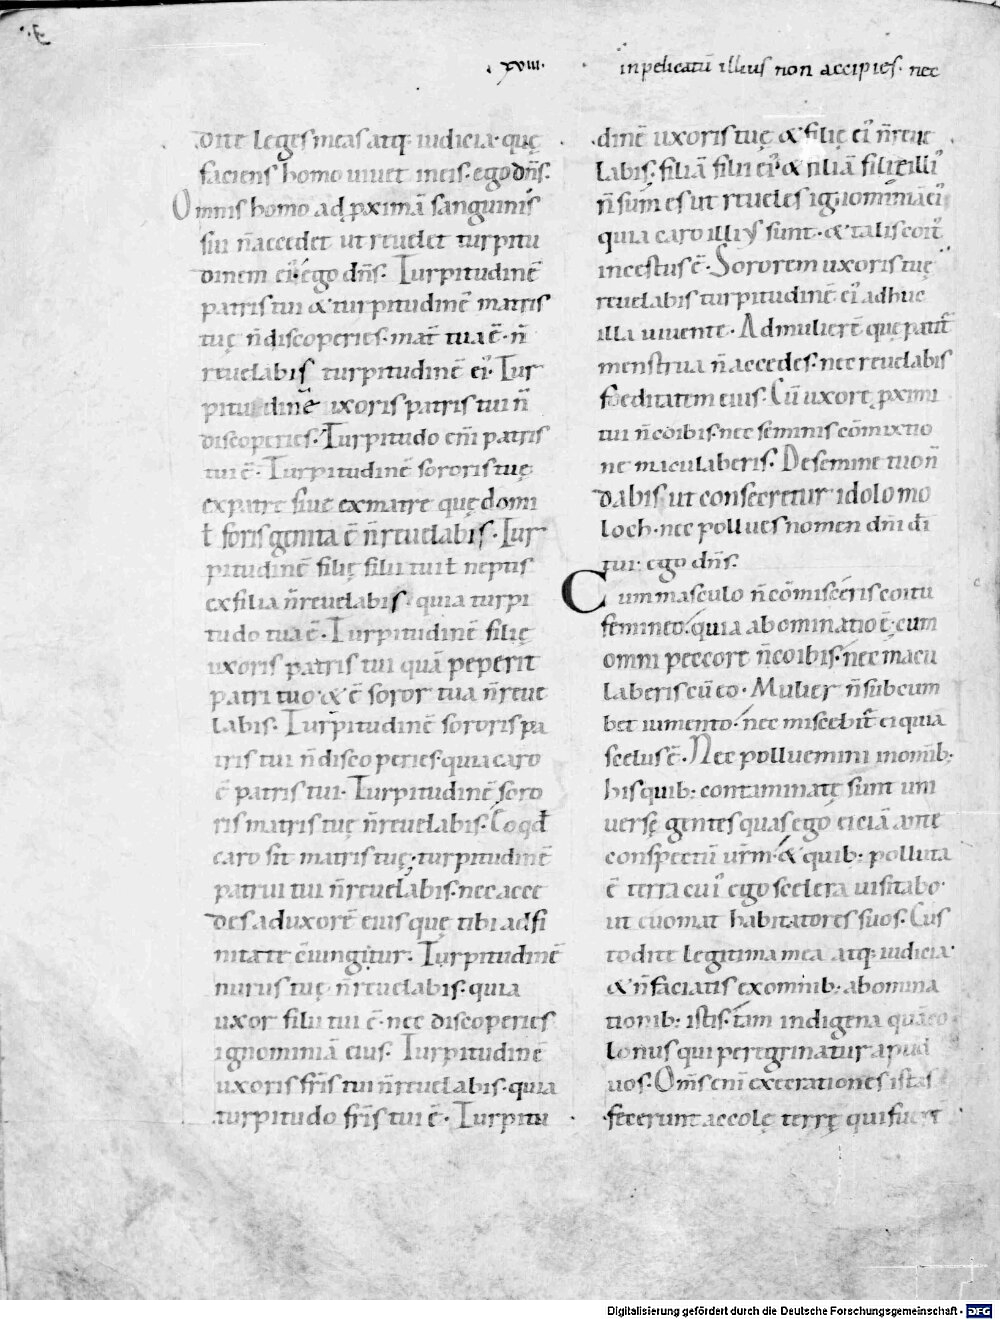 .xviii.
in pelicatū illius non accipies. nec
dite leges meas atq: iudicia. quę
faciens homo uiuet in eis. ego dñs.
Omnis homo ad pximā sanguinis
sui ñ accedet ut reuelet turpitu
dinem ei'. ego dñs. Turpitudinē
patris tui & turpitudinē matris
tuę ñ discoperies. mat̄ tua ē. ñ
reuelabis turpitudinē ei'. Tur
pitudinē uxoris patris tui ñ
discoperies. Turpitudo eni patris
tui ē. Turpitudinē sororis tuę
ex patre siue ex matre quę domi
ł foris genita ē ñ reuelabis. Tur
pitudinē filię filii tui ł neptis
ex filia ñ reuelabis. quia turpi
tudo tua ē. Turpitudinē filię
uxoris patris tui quā peperit
patri tuo. & ē soror tua ñ reue
labis. Turpitudinē sororis pa
tris tui ñ discoperies. quia caro
ē patris tui. Turpitudinē soro
ris matris tuę ñ reuelabis. Eo qđ
caro sit matris tuę. turpitudinē
patrui tui ñ reuelabis. nec acce
des ad uxorē eius quę tibi adfi
nitate c̄iungitur. Turpitudinē
nurus tuę ñ reuelabis. quia
uxor filii tui ē. nec discoperies
ignominiā eius. Turpitudinē
uxoris fr̄is tui ñ reuelabis. quia
turpitudo fr̄is tui ē. Turpitu
dinē uxoris tuę & filię ei' ñ reue
labis. filiā filii ei' & filiā filię illi'
ñ sumes ut reueles ignominiā ei'
quia caro illi' sunt. & talis coit'
incestus ē. Sororem uxoris tuę
reuelabis turpitudinē ei' adhuc
illa uiuente. Ad mulierē quę patit'
menstrua ñ accedes. nec reuelabis
foeditatem eius. Cū uxore pximi
tui ñ coibis. nec seminis cōmixtio
ne maculaberis. De semine tuo ñ
dabis ut consecretur idolo mo
loch. nec pollues nomen dñi dī
tui. ego dñs.
Cum masculo ñ cōmisceris coitu
femineo. quia abominatio ē. cum
omni peccore ñ coibis. nec macu
laberis cū eo. Mulier ñ subcum
bet iumento. nec miscebit' ei quia
scelus ē. Nec polluemini in omib:
his quib: contaminatę sunt uni
uersę gentes quas ego eiciā ante
conspectū ur̄m. & quib: polluta
ē terra cui' ego scelera uisitabo.
ut euomat habitatores suos. Cus
todite legitima mea atq: iudicia.
& ñ faciatis ex omib: abomina
tionib: istis. tam indigena quā co
lonus qui peregrinatur apud
uos. Om̄s eni execrationes istas
fecerunt accolę terrę qui fuer̄
Digitalisierung gefördert durch die Deutsche Forschungsgemeinschaft - DFG